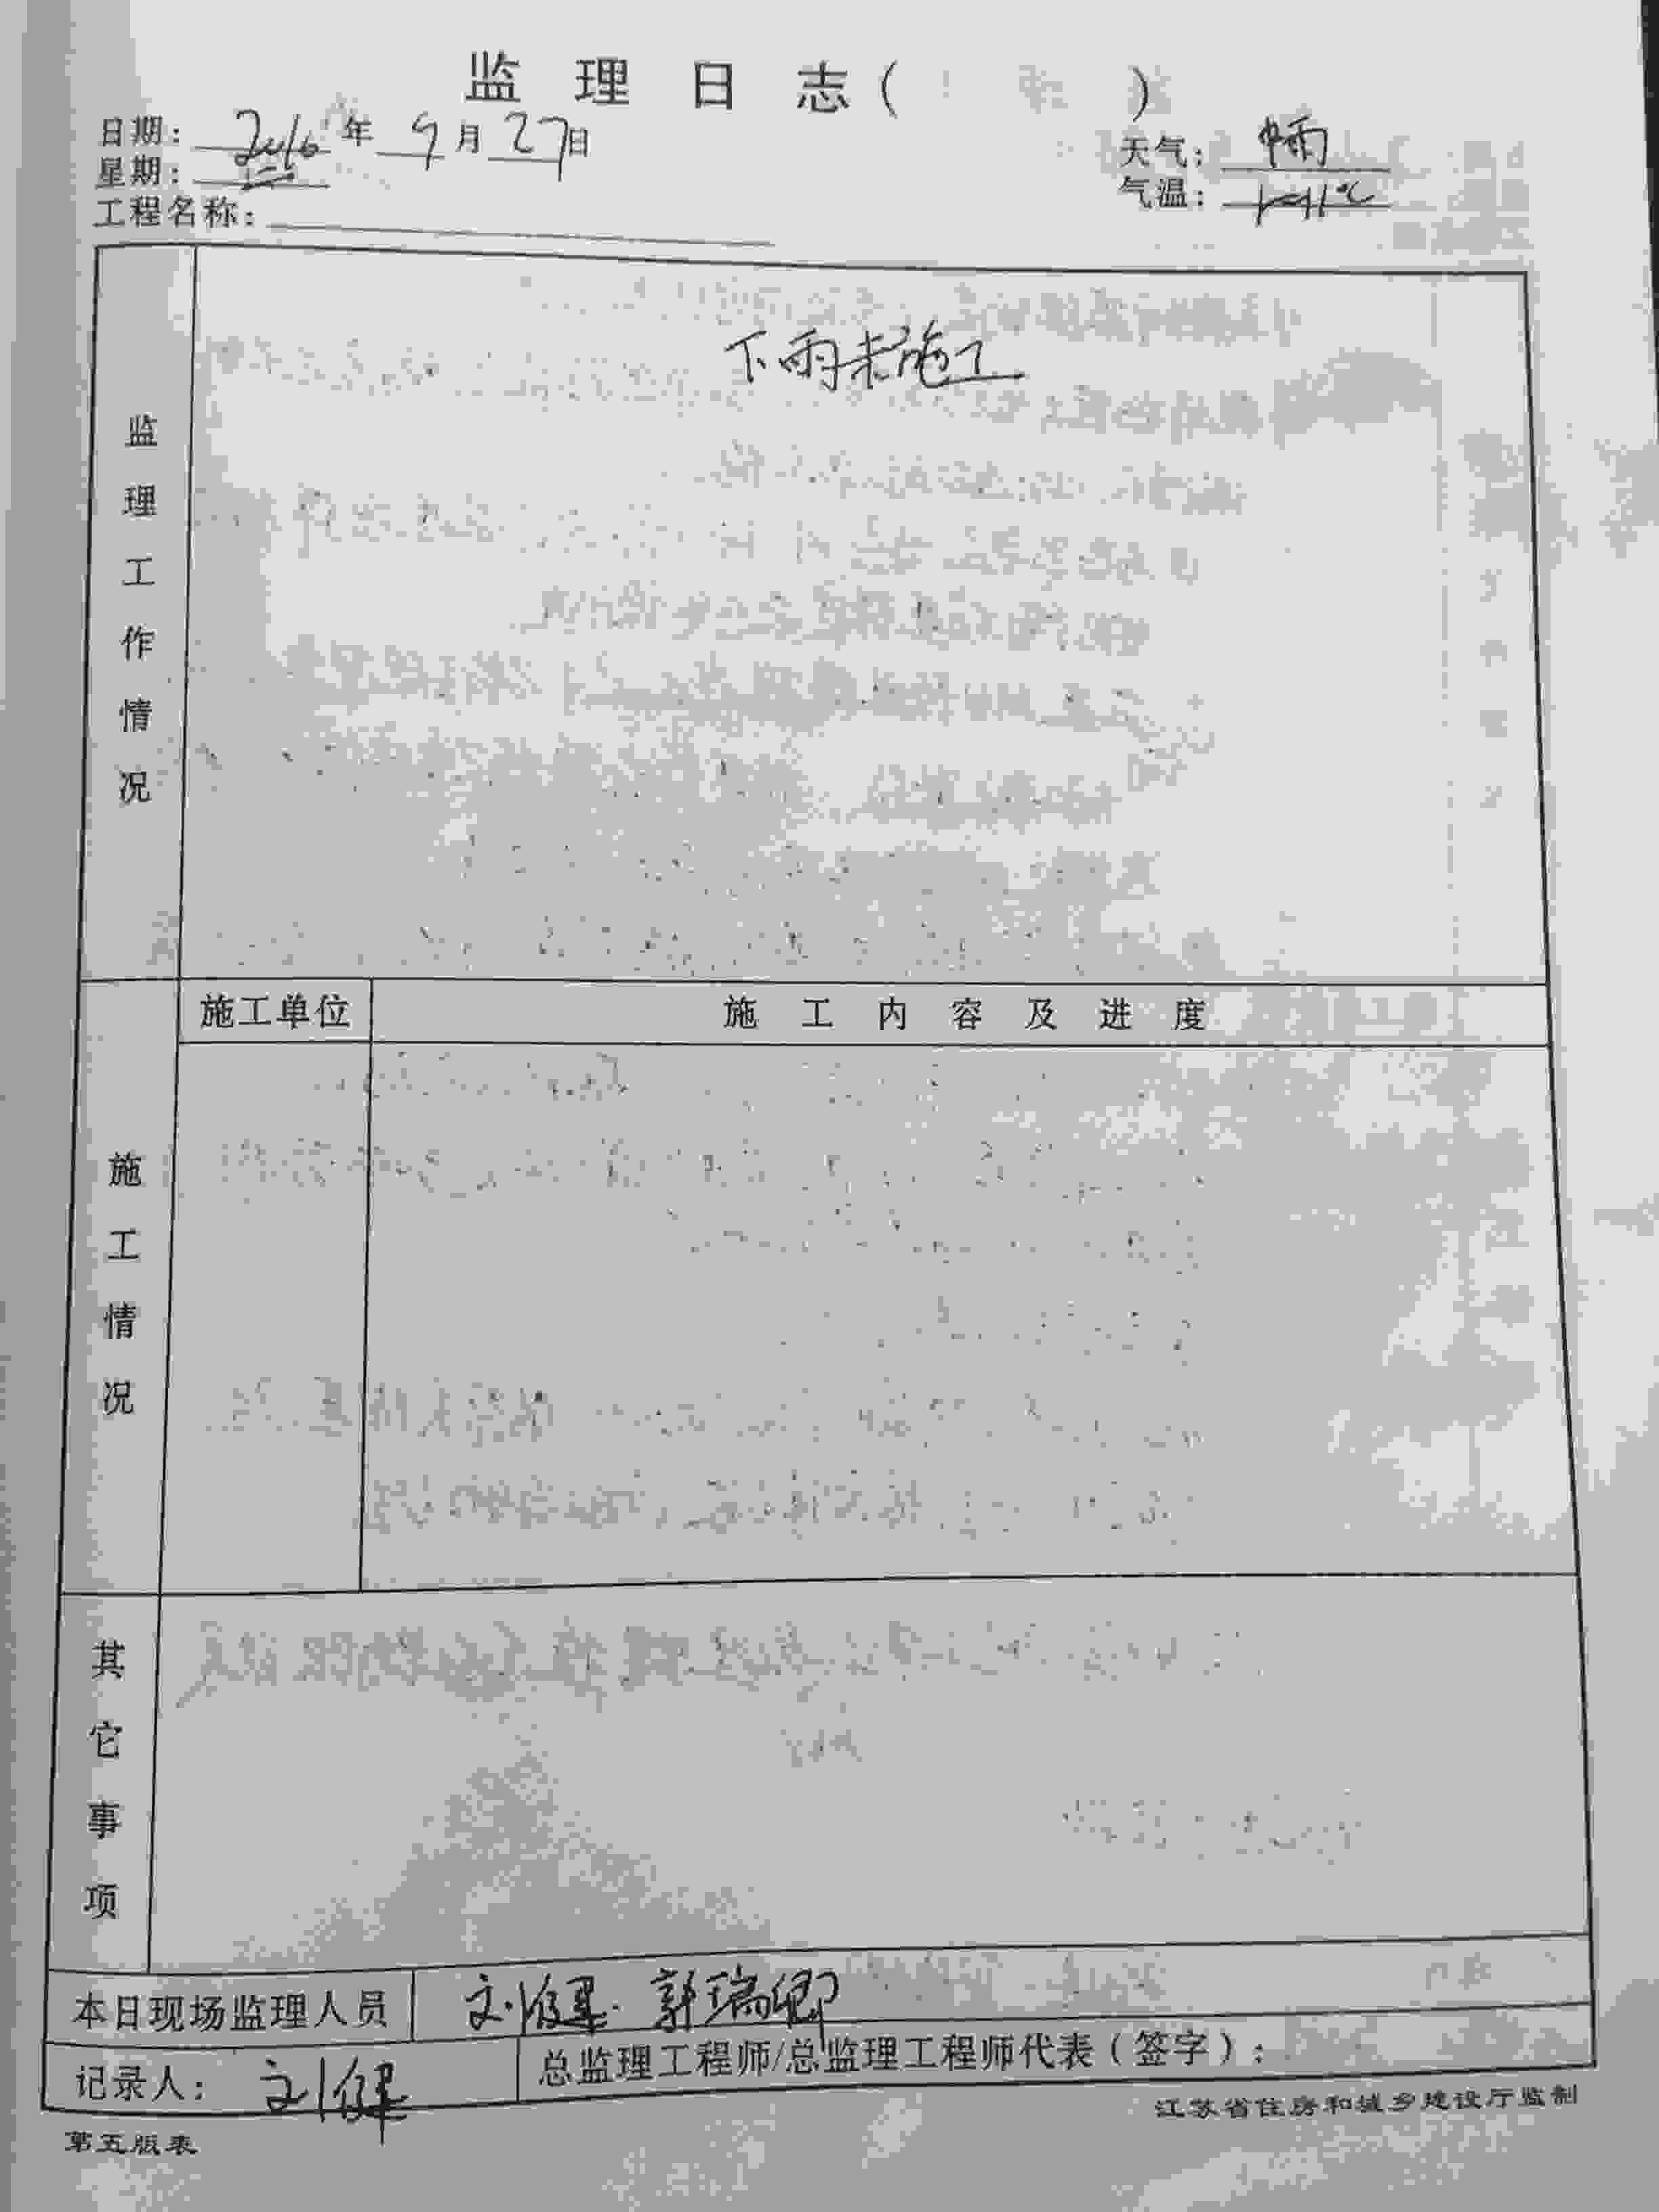 监理日志( )
日期: 2016 年 9 月 27 日
星期: 二
天气: 中雨
气温:
工程名称:
监理工作情况
下雨未施工
施工情况
施工单位 施工内容及进度
其它事项
本日现场监理人员 刘俊堅 郭瑞卿
记录人: 刘俊堅 总监理工程师/总监理工程师代表(签字):
第五版表 江苏省住房和城乡建设厅监制